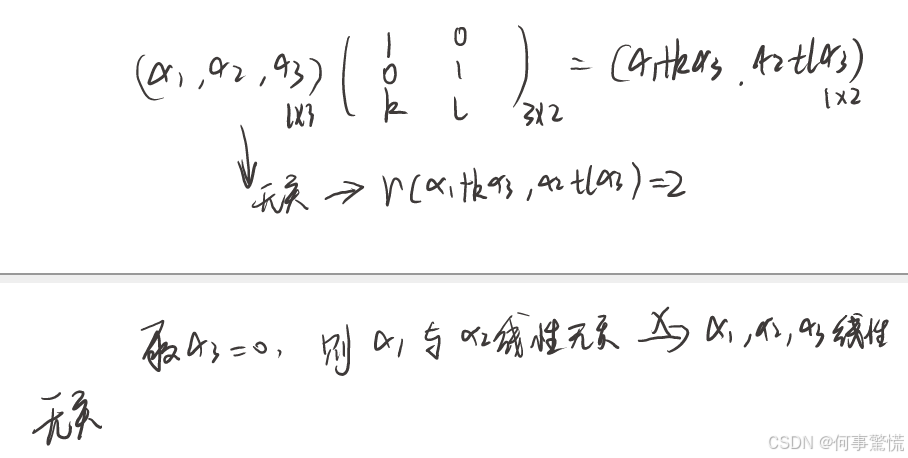 (α₁, α₂, α₃)₁ₓ₃ ( 1 0
0 1
k l )₃ₓ₂ = (α₁+kα₃, α₂+lα₃)₁ₓ₂
↓
无关 → r(α₁+kα₃, α₂+lα₃)=2
取α₃=0, 则 α₁ 与 α₂线性无关 X→ α₁, α₂, α₃线性
无关
CSDN @何事驚慌